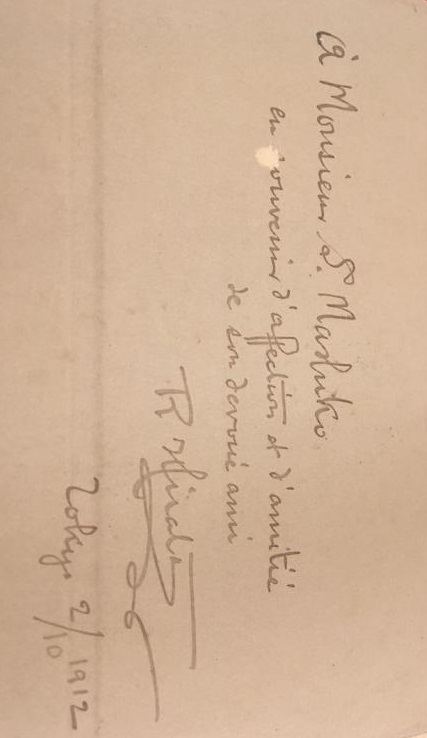 à Monsieur S. Mashiko
en souvenir d'affection et d'amitié
de son dévoué ami
R
Tokyo 2/10 1912